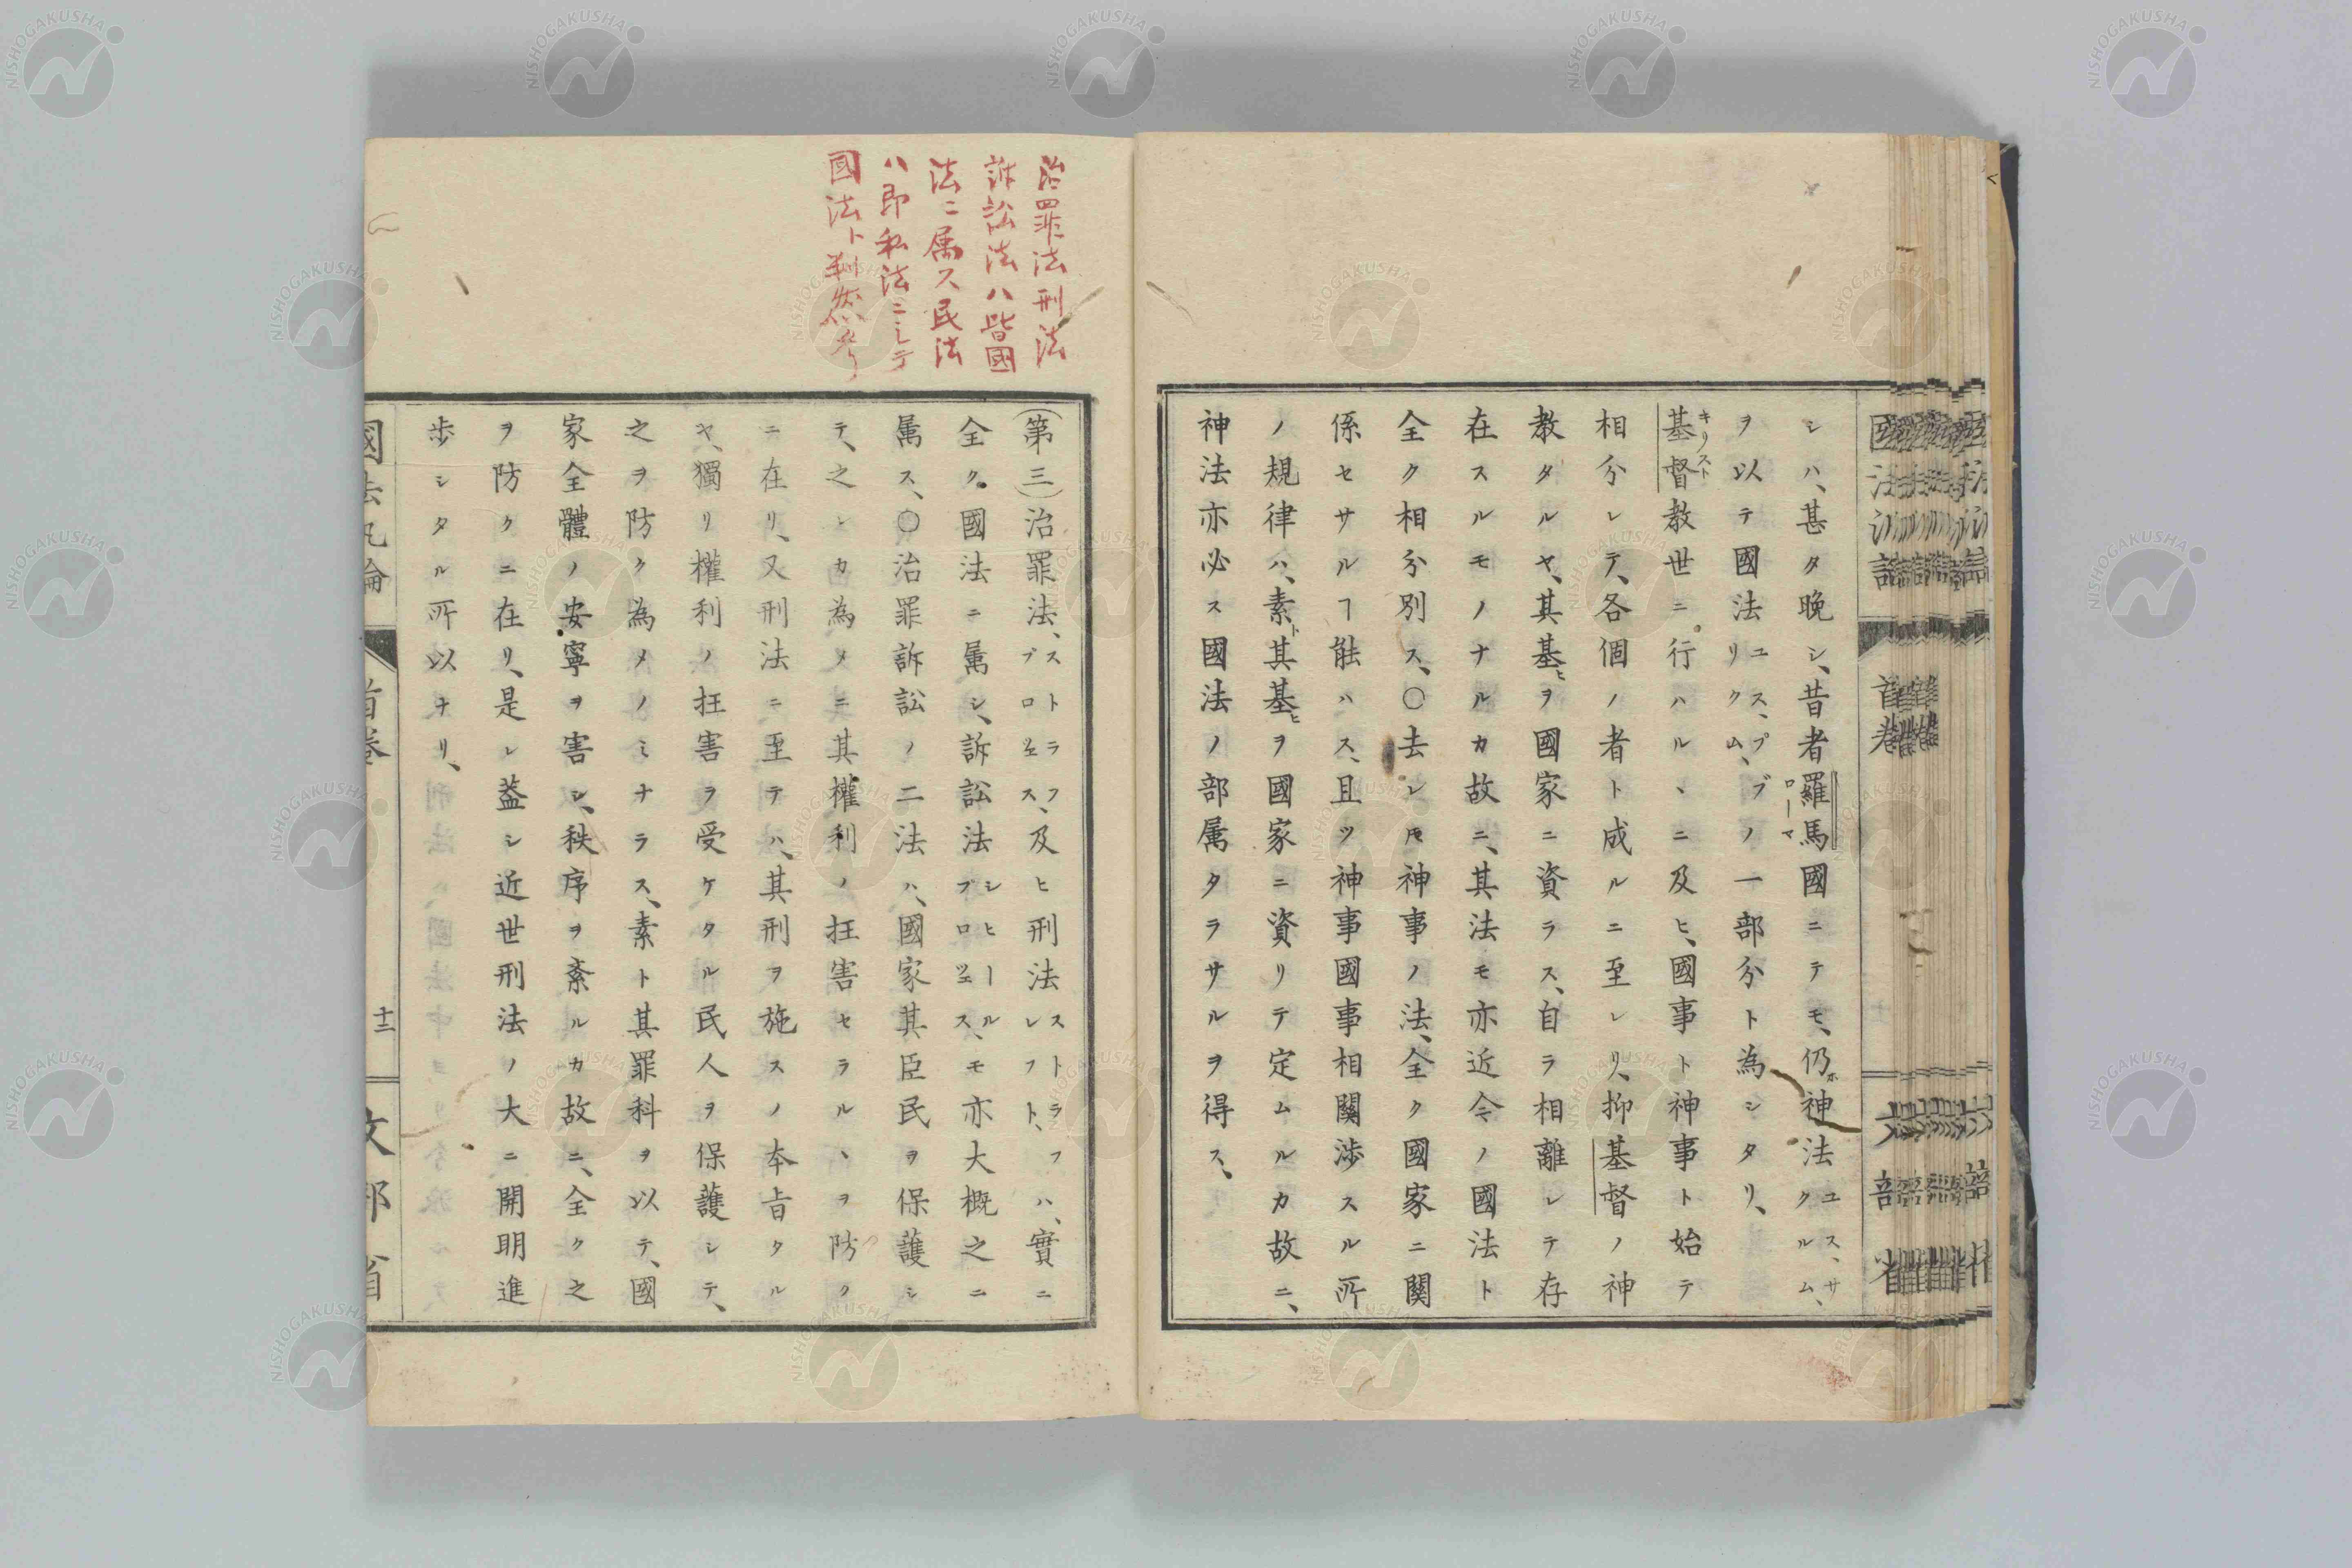 シハ、甚タ晩シ、昔者羅馬ローマ國ニテモ、仍ホ神法ユス、サクルム、
ヲ以テ國法ユス、プブリクム、ノ一部分ト為シタリ、
基督キリスト教世ニ行ハルヽニ及ヒ、國事ト神事ト始テ
相分レテ、各個ノ者ト成ルニ至レリ、抑基督ノ神
教タルヤ、其基ヒヲ國家ニ資ラス、自ラ相離レテ存
在スルモノナルカ故ニ、其法モ亦近今ノ國法ト
全ク相分別ス、〇去レ𪜈神事ノ法、全ク國家ニ關
係セサルヿ能ハス、且ツ神事國事相關渉スル所
ノ規律ハ、素ト其基ヒヲ國家ニ資リテ定ムルカ故ニ、
神法亦必ス國法ノ部属タラサルヲ得ス、
治罪法刑法
訴訟法ハ皆國
法ニ属ス民法
ハ即私法ニシテ
國法ト判然
(第三)治罪法、ストラフプロツェス、及ヒ刑法ストラフレフト、ハ、實ニ
全ク國法ニ属シ、訴訟法シヒールプロツェス、モ亦大概之ニ
属ス、〇治罪訴訟ノ二法ハ、國家其臣民ヲ保護シ
テ、之レカ為メニ其權利ノ抂害セラルヽヲ防ク
ニ在リ、又刑法ニ至テハ、其刑ヲ施スノ本旨タル
ヤ、獨リ權利ノ抂害ヲ受ケタル民人ヲ保護シテ、
之ヲ防ク為メノミナラス、素ト其罪科ヲ以テ、國
家全體ノ安寧ヲ害シ、秩序ヲ紊ルカ故ニ、全ク之
ヲ防クニ在リ、是レ葢シ近世刑法ノ大ニ開明進
歩シタル所以ナリ、
國法汎論 首巻 十二 文部省